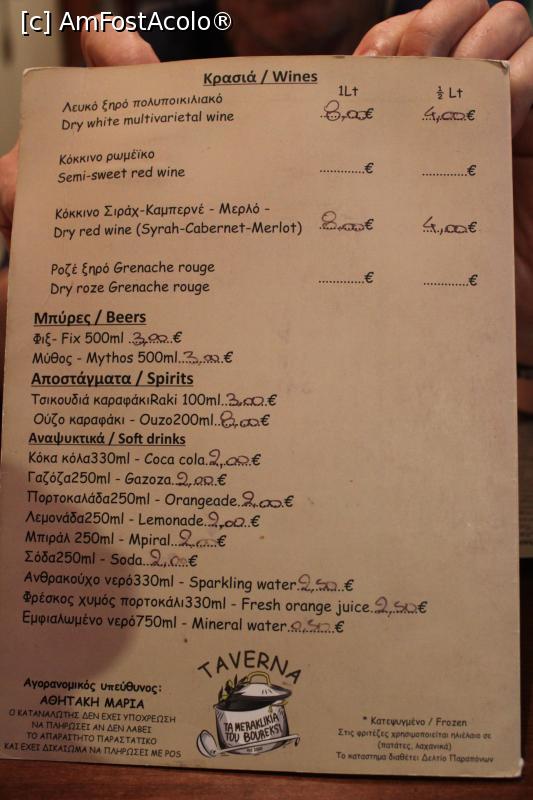 [c] AmFostAcolo®
Κρασιά / Wines
1Lt ½ Lt
Λευκό ξηρό πολυποικιλιακό
Dry white multivarietal wine 8,00€ 4,00€
Κόκκινο ρωμέϊκο
Semi-sweet red wine .............€ ............€
Κόκκινο Σιράχ-Καμπερνέ - Μερλό -
Dry red wine (Syrah-Cabernet-Merlot) 8,00€ 4,00€
Ροζέ ξηρό Grenache rouge
Dry roze Grenache rouge .............€ ............€
Μπύρες / Beers
Φιξ- Fix 500ml 3,00€
Μύθος - Mythos 500ml 3,00€
Αποστάγματα / Spirits
Τσικουδιά καραφάκιRaki 100ml 3,00€
Ούζο καραφάκι - Ouzo200ml 8,00€
Αναψυκτικά / Soft drinks
Κόκα κόλα330ml - Coca cola 2,00€
Γαζόζα250ml - Gazoza 2,00€
Πορτοκαλάδα250ml - Orangeade 2,00€
Λεμονάδα250ml - Lemonade 2,00€
Μπιράλ 250ml - Mpiral 2,00€
Σόδα250ml - Soda 2,00€
Ανθρακούχο νερό330ml - Sparkling water 2,50€
Φρέσκος χυμός πορτοκάλι330ml - Fresh orange juice 2,50€
Εμφιαλωμένο νερό750ml - Mineral water 0,50€
TAVERNA
ΤΑ MERAKLIKIA
TOU BOUREKSI
Αγορανομικός υπεύθυνος:
ΑΘΗΤΑΚΗ ΜΑΡΙΑ
Ο ΚΑΤΑΝΑΛΩΤΗΣ ΔΕΝ ΕΧΕΙ ΥΠΟΧΡΕΩΣΗ
ΝΑ ΠΛΗΡΩΣΕΙ ΑΝ ΔΕΝ ΛΑΒΕΙ
ΤΟ ΑΠΑΡΑΙΤΗΤΟ ΠΑΡΑΣΤΑΤΙΚΟ
ΚΑΙ ΕΧΕΙ ΔΙΚΑΙΩΜΑ ΝΑ ΠΛΗΡΩΣΕΙ ΜΕ POS
* Κατεψυγμένο / Frozen
Στις φριτέζες χρησιμοποιείται ηλιέλαιο σε
(πατάτες, λαχανικά)
Το κατάστημα διαθέτει Δελτίο Παραπόνων